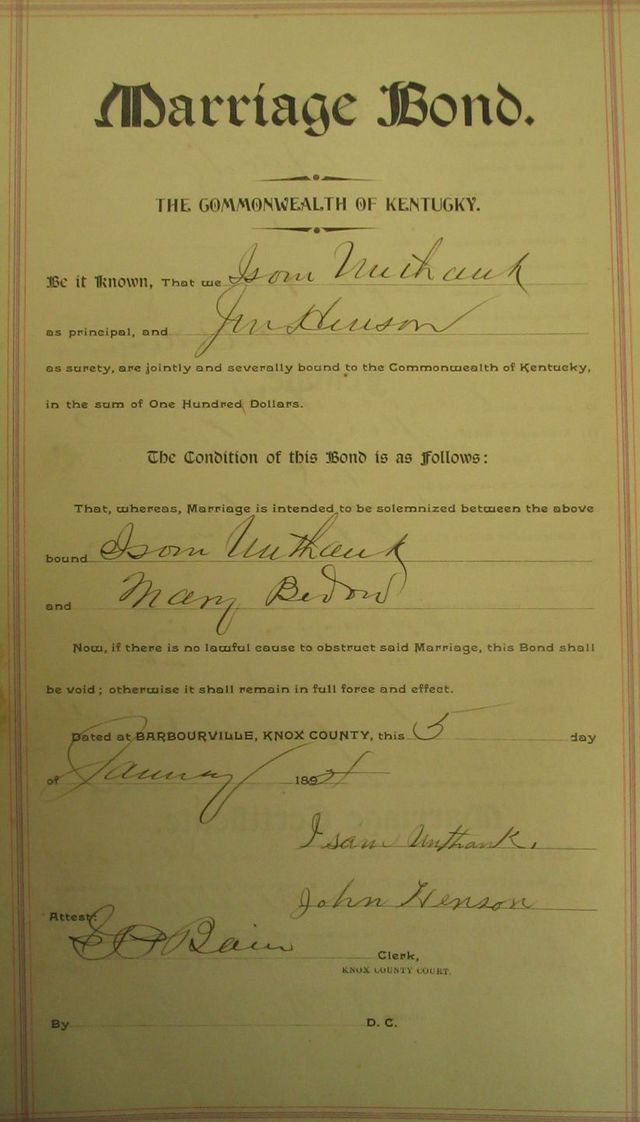 Marriage Bond.
THE COMMONWEALTH OF KENTUCKY.
Be it Known, That we Isom Unthank
as principal, and Jno Henson
as surety, are jointly and severally bound to the Commonwealth of Kentucky,
in the sum of One Hundred Dollars.
The Condition of this Bond is as Follows:
That, whereas, Marriage is intended to be solemnized between the above
bound Isom Unthank
and Mary Bedow
Now, if there is no lawful cause to obstruct said Marriage, this Bond shall
be void; otherwise it shall remain in full force and effect.
Dated at BARBOURVILLE, KNOX COUNTY, this 5 day
of January 189
Isam Unthank.
John Henson
Attest:
Bain Clerk,
KNOX COUNTY COURT.
By D. C.